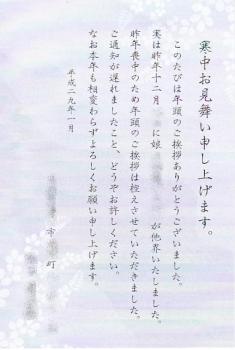 寒中お見舞い申し上げます。
このたびは年頭のご挨拶ありがとうございました。
実は昨年十二月 に娘 が他界いたしました。
昨年喪中のため年頭のご挨拶は控えさせていただきました。
ご通知が遅れましたこと、どうぞお許しください。
なお本年も相変わらずよろしくお願い申し上げます。
平成二九年一月
市 町